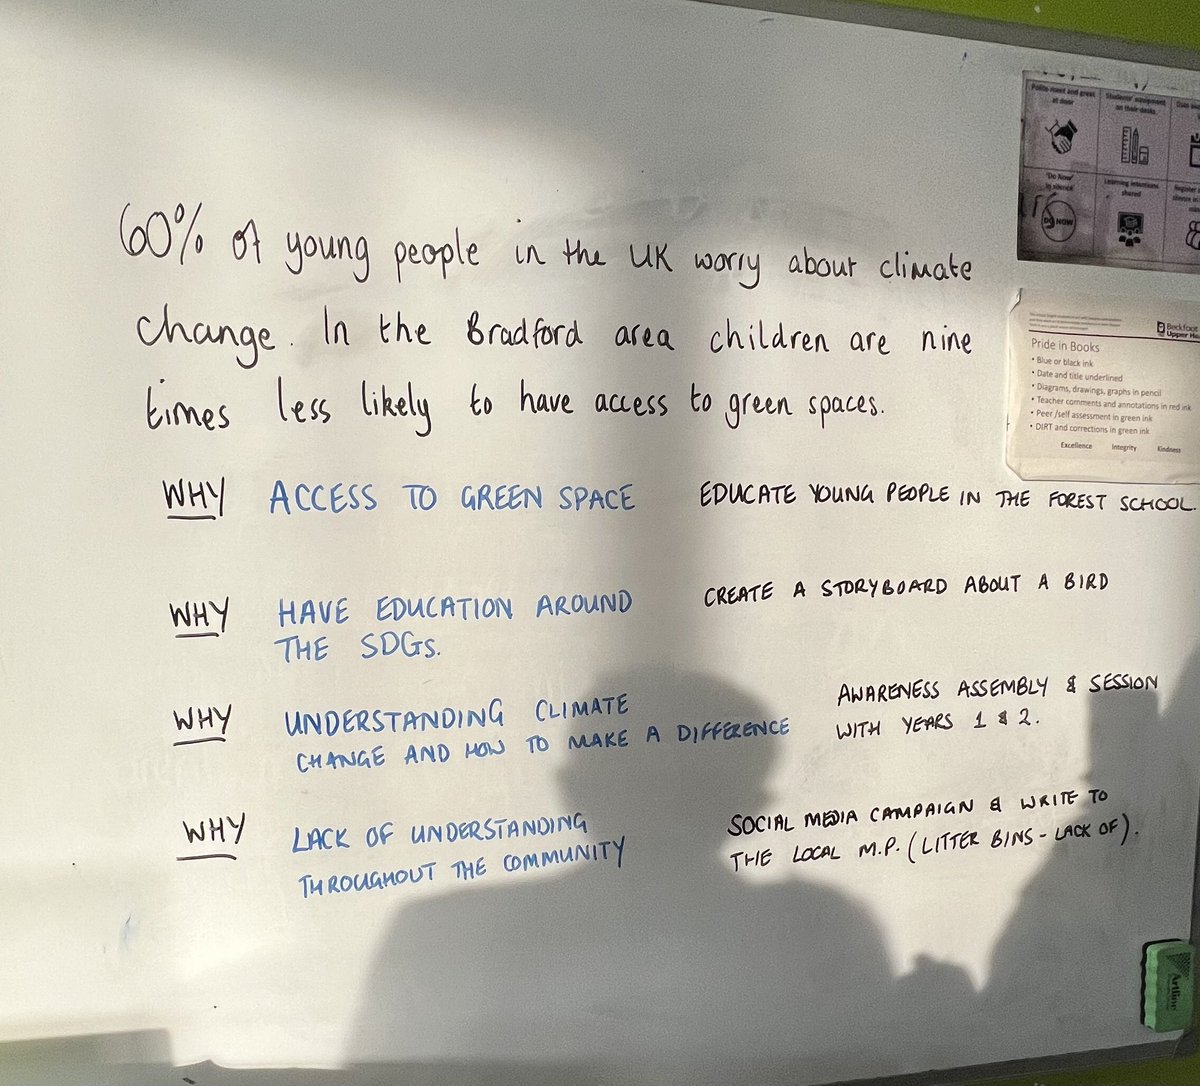 60% of young people in the UK worry about climate
change. In the Bradford area children are nine
times less likely to have access to green spaces.
WHY ACCESS TO GREEN SPACE EDUCATE YOUNG PEOPLE IN THE FOREST SCHOOL.
WHY HAVE EDUCATION AROUND CREATE A STORYBOARD ABOUT A BIRD
THE SDGs.
WHY UNDERSTANDING CLIMATE AWARENESS ASSEMBLY & SESSION
CHANGE AND HOW TO MAKE A DIFFERENCE WITH YEARS 1 & 2.
WHY LACK OF UNDERSTANDING SOCIAL MEDIA CAMPAIGN & WRITE TO
THROUGHOUT THE COMMUNITY THE LOCAL M.P. (LITTER BINS - LACK OF).
Polite meet and greet
at door
Students' equipment
on their desks
'Do Now'
in silence
DO NOW
Learning intentions
shared
Register
silence in
Beckfoot
Upper He
Pride in Books
• Blue or black ink
• Date and title underlined
• Diagrams, drawings, graphs in pencil
• Teacher comments and annotations in red ink
• Peer /self assessment in green ink
• DIRT and corrections in green ink
Excellence Integrity Kindness
Artline